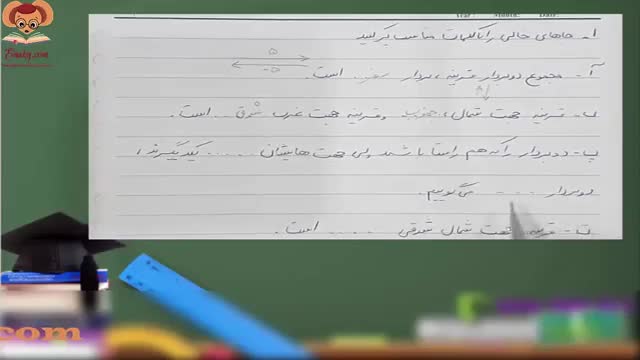 ۱- جاهای خالی را با کلمات مناسب پر کنید
آ- مجموع دو بردار قرینه، بردار صفر است.
ب- قرینه جهت شمال، جنوب و قرینه جهت غرب شرق است.
پ- دو بردار را که هم راستا باشند ولی جهت هایشان ..... یکدیگرند،
دو بردار ..... می گوییم.
ت- قرینه جهت شمال شرقی ..... است.